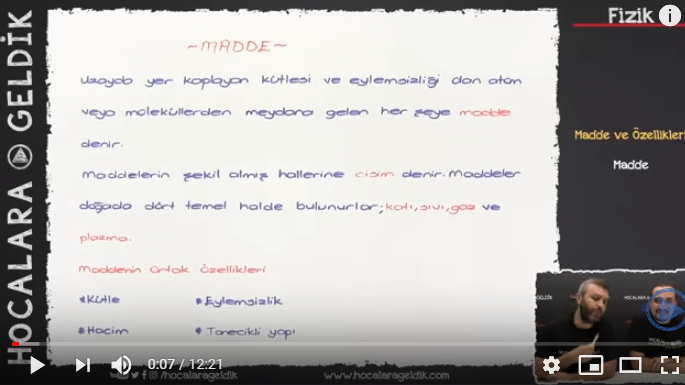 HOCALARA GELDİK
Fizik
~MADDE~
Uzayda yer kaplayan kütlesi ve eylemsizliği olan atom
veya moleküllerden meydana gelen her şeye madde
denir.
Maddelerin şekil almış hallerine cisim denir. Maddeler
doğada dört temel halde bulunurlar; katı, sıvı, gaz ve
plazma.
Maddenin Ortak Özellikleri
*Kütle *Eylemsizlik
*Hacim *Tanecikli yapı
Madde ve Özellikleri
Madde
0:07 / 12:21
/hocalarageldik
www.hocalarageldik.com